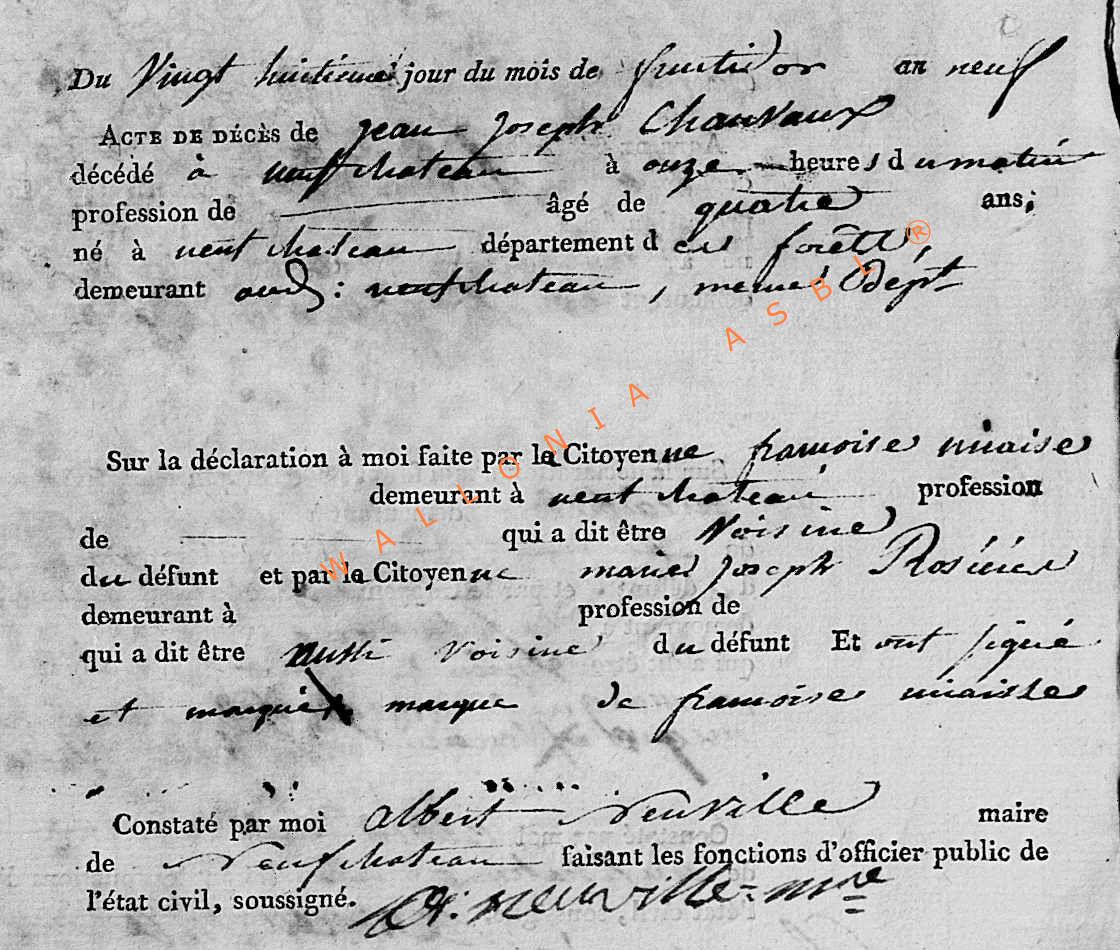 Du Vingt huitieme jour du mois de fructidor an neuf
ACTE DE DÉCÈS de jean joseph Chauvaux
décédé à neufchateau à onze heures du matin
profession de âgé de quatre ans;
né à neufchateau département des forêts,
demeurant aud: neufchateau, meme dépt
Sur la déclaration à moi faite par la Citoyenne francoise
demeurant à neufchateau profession
de qui a dit être Voisine
du défunt et par la Citoyenne marie joseph
demeurant à profession de
qui a dit être aussi voisine du défunt Et ont signé
et marqué marque de francoise
Constaté par moi albert Neuville maire
de Neufchateau faisant les fonctions d'officier public de
l'état civil, soussigné. A. Neuville mre
WALLONIA ASBL®